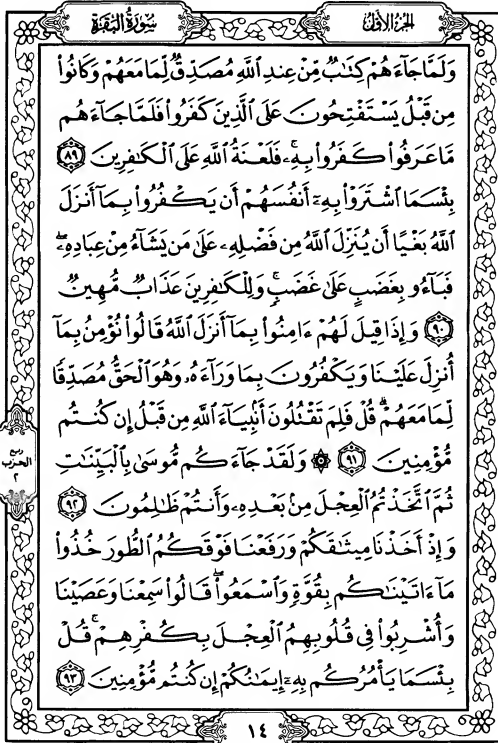 سُورَةُ البَقَرَةِ
الجزء الأول
وَلَمَّا جَآءَهُمْ كِتَٰبٌ مِّنْ عِندِ ٱللَّهِ مُصَدِّقٌ لِّمَا مَعَهُمْ وَكَانُوا۟
مِن قَبْلُ يَسْتَفْتِحُونَ عَلَى ٱلَّذِينَ كَفَرُوا۟ فَلَمَّا جَآءَهُم
مَّا عَرَفُوا۟ كَفَرُوا۟ بِهِۦۚ فَلَعْنَةُ ٱللَّهِ عَلَى ٱلْكَٰفِرِينَ ٨٩
بِئْسَمَا ٱشْتَرَوْا۟ بِهِۦٓ أَنفُسَهُمْ أَن يَكْفُرُوا۟ بِمَآ أَنزَلَ
ٱللَّهُ بَغْيًا أَن يُنَزِّلَ ٱللَّهُ مِن فَضْلِهِۦ عَلَىٰ مَن يَشَآءُ مِنْ عِبَادِهِۦۖ
فَبَآءُو بِغَضَبٍ عَلَىٰ غَضَبٍۚ وَلِلْكَٰفِرِينَ عَذَابٌ مُّهِينٌ
٩٠ وَإِذَا قِيلَ لَهُمْ ءَامِنُوا۟ بِمَآ أَنزَلَ ٱللَّهُ قَالُوا۟ نُؤْمِنُ بِمَآ
أُنزِلَ عَلَيْنَا وَيَكْفُرُونَ بِمَا وَرَآءَهُۥ وَهُوَ ٱلْحَقُّ مُصَدِّقًا
لِّمَا مَعَهُمْۗ قُلْ فَلِمَ تَقْتُلُونَ أَنۢبِيَآءَ ٱللَّهِ مِن قَبْلُ إِن كُنتُم
مُّؤْمِنِينَ ٩١ ۞ وَلَقَدْ جَآءَكُم مُّوسَىٰ بِٱلْبَيِّنَٰتِ
ثُمَّ ٱتَّخَذْتُمُ ٱلْعِجْلَ مِنۢ بَعْدِهِۦ وَأَنتُمْ ظَٰلِمُونَ ٩٢
وَإِذْ أَخَذْنَا مِيثَٰقَكُمْ وَرَفَعْنَا فَوْقَكُمُ ٱلطُّورَ خُذُوا۟
مَآ ءَاتَيْنَٰكُم بِقُوَّةٍ وَٱسْمَعُوا۟ۖ قَالُوا۟ سَمِعْنَا وَعَصَيْنَا
وَأُشْرِبُوا۟ فِى قُلُوبِهِمُ ٱلْعِجْلَ بِكُفْرِهِمْۚ قُلْ
بِئْسَمَا يَأْمُرُكُم بِهِۦٓ إِيمَٰنُكُمْ إِن كُنتُم مُّؤْمِنِينَ ٩٣
ربع
الحزب
٢
١٤